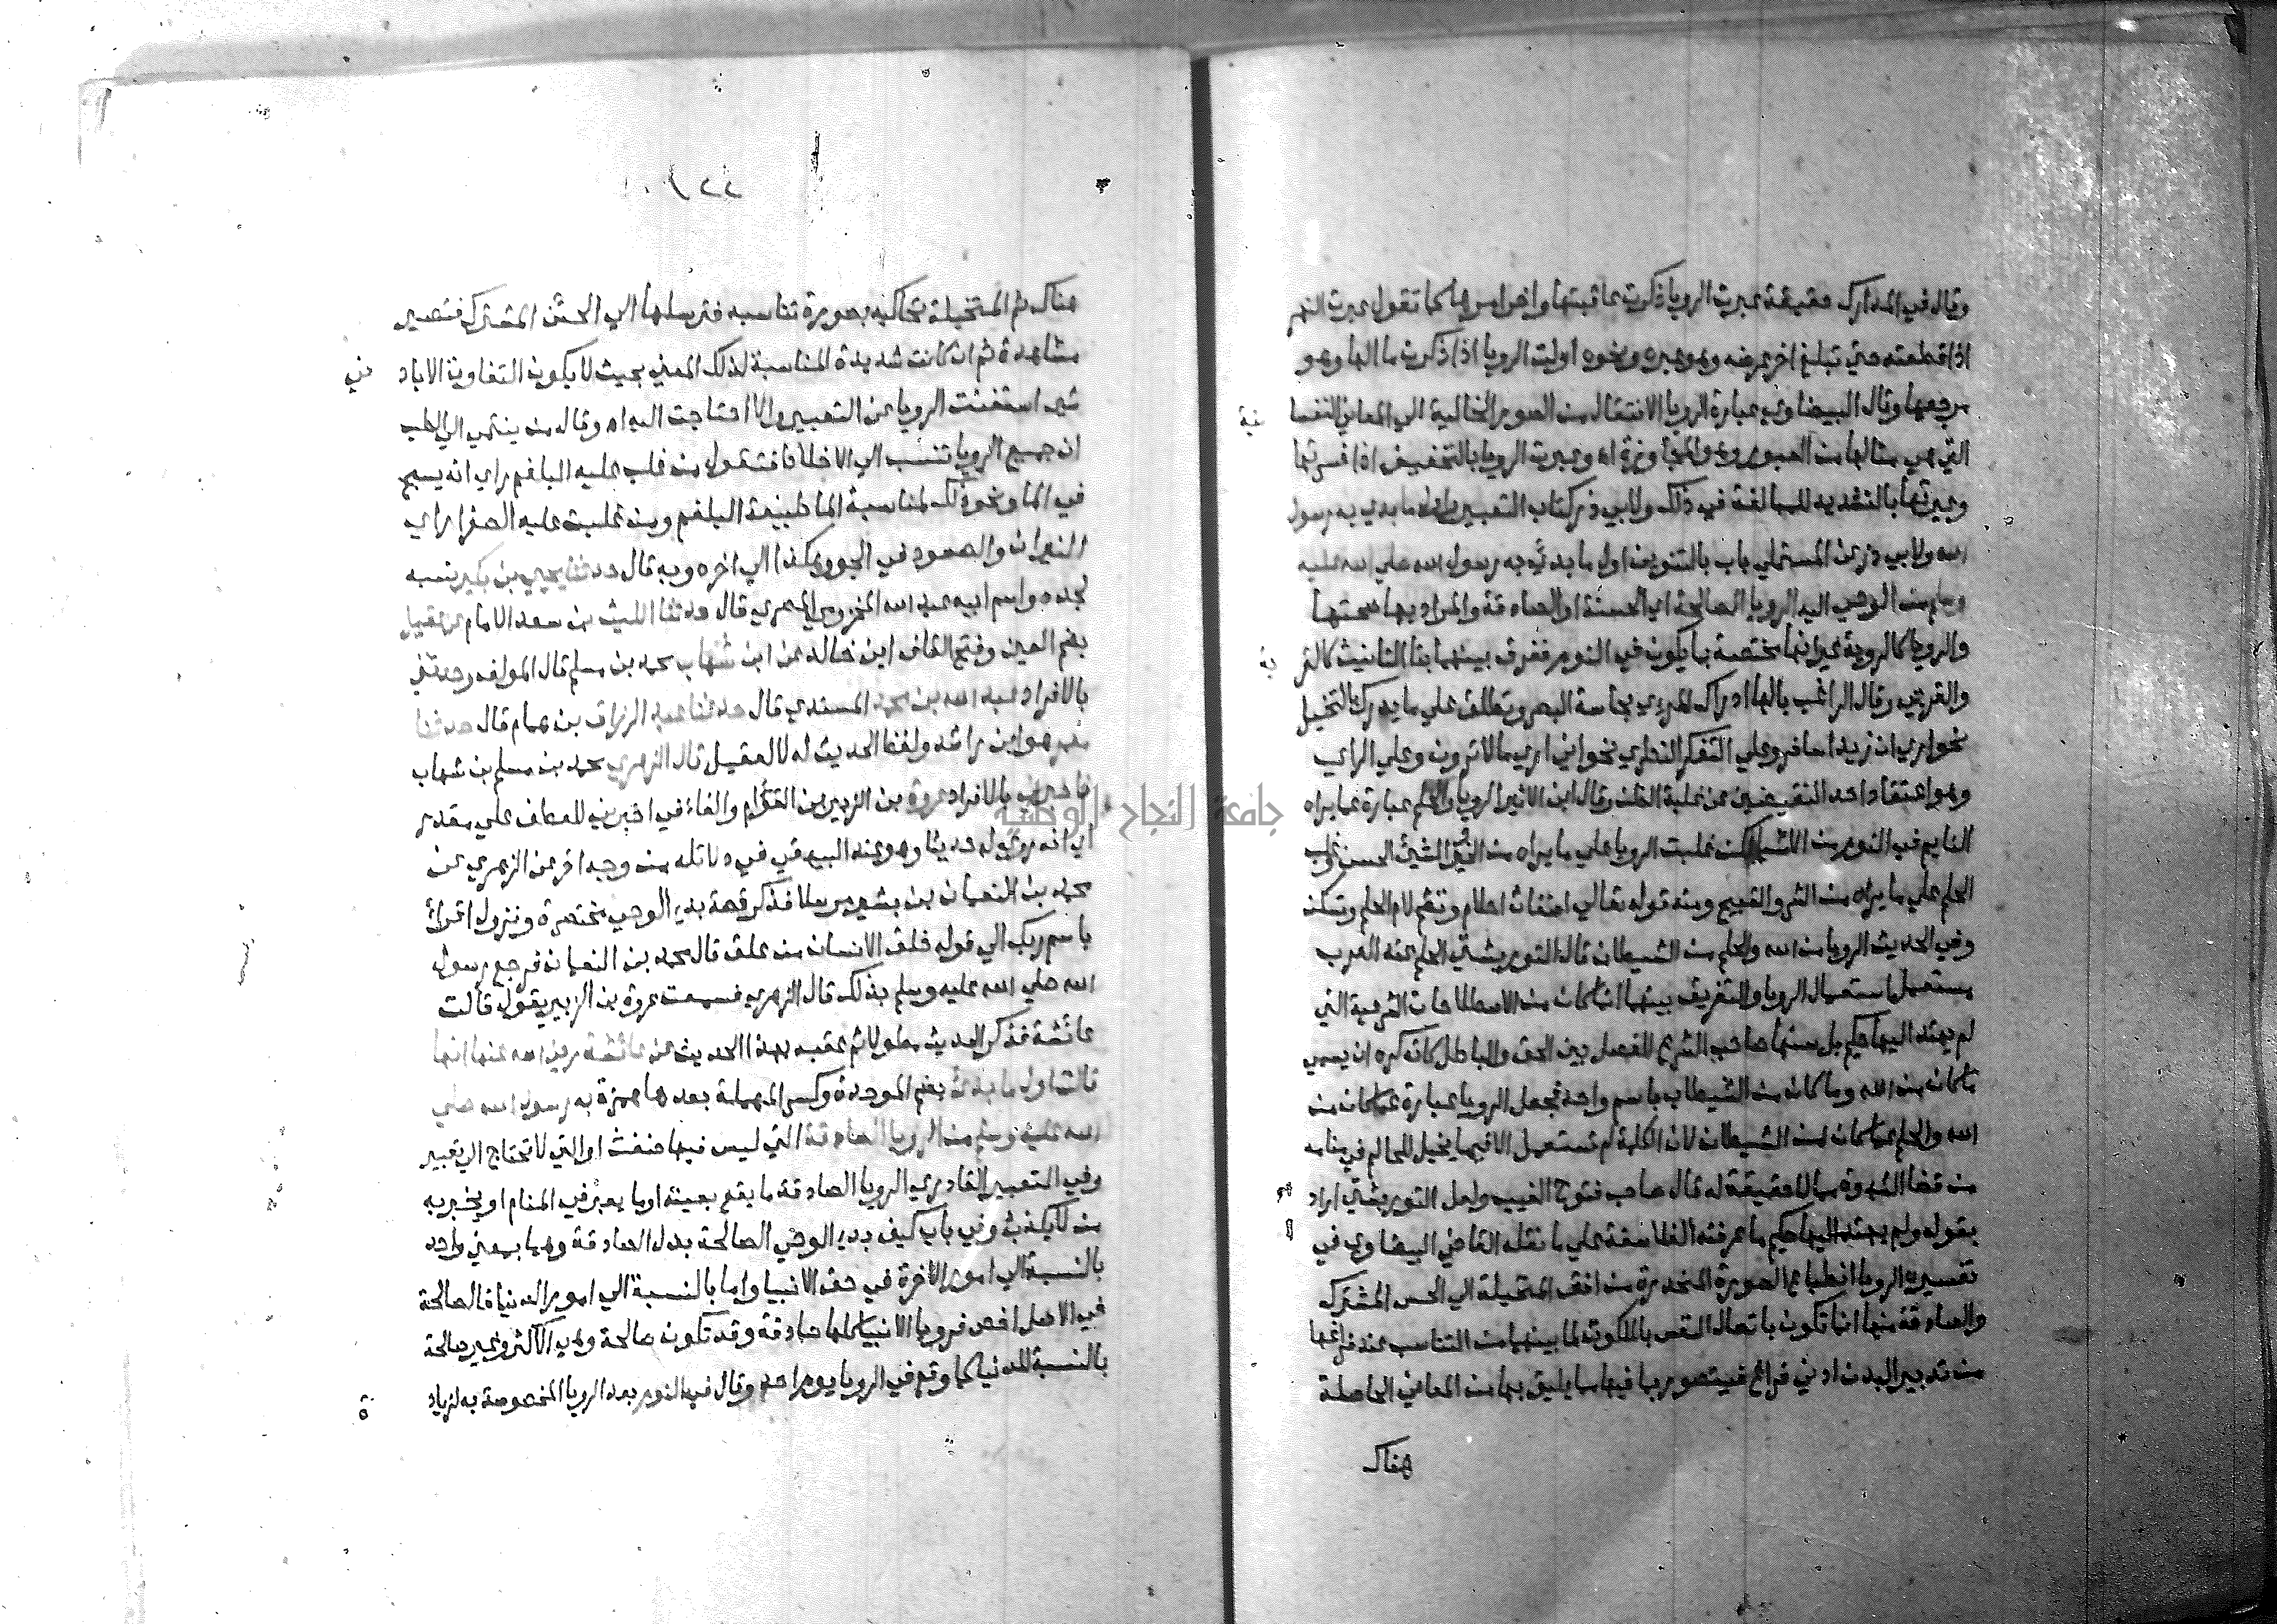 وقال في المدارك حقيقة عبرت الرويا ذكرت عاقبتها واخر امرها كما تقول عبرت النهر
اذا قطعته حتي تبلغ اخر عرضه وهو عبره ونحوه اولت الرويا اذا ذكرت مالها وهو
مرجعها وقال البيضاوي عبارة الرويا الانتقال من الصور الخالية الي المعاني النفسا
نية
التي هي مثالها من العبور وهو المجاوزة اه وعبرت الرويا بالتخفيف اذا فسرتها
وعبرتها بالتشديد للمبالغة في ذلك ولابي ذر كتاب التعبير اول ما بدي به رسول
الله ولابي ذر عن المستملي باب بالتنوين اول ما بدئ به رسول الله صلي الله عليه
وسلم من الوحي اليه الرويا الصالحة اي الحسنة او الصادقة والمراد بها صحتها
والرويا كالروية غير انها مختصة بما يكون في النوم ففرق بينهما بتا التانيث كالقر
بة
والقربي وقال الراغب بالها ادراك المرئي بحاسة البصر وتطلق علي ما يدرك بالتخيل
نحو اري ان زيدا سافر وعلي التفكر النظري نحو اني اري مالا ترون وعلي الراي
وهو اعتقاد احد النقيضين عن غلبة الظن وقال ابن الاثير الرويا والحلم عبارة عما يراه
النايم في النوم من الاشيا لكن غلبت الرويا علي ما يراه من الخير والشئ الحسن وغلب
الحلم علي ما يراه من الشر والقبيح ومنه قوله تعالي اضغاث احلام وتضم لام الحلم وتسكن
وفي الحديث الرويا من الله والحلم من الشيطان قال التوربشتي الحلم عند العرب
مستعمل استعمال الرويا والتفريق بينهما انما كان من الاصطلاحات الشرعية التي
لم يهتد اليها حكيم بل سنها صاحب الشرع للفصل بين الحق والباطل كانه كره ان يسمي
ماكان من الله وما كان من الشيطان باسم واحد فجعل الرويا عبارة عما كان من
الله والحلم عما كان من الشيطان لان الكلمة لم تستعمل الا فيما يخيل للحالم في منامه
من قضا الشهوة مما لا حقيقة له قال صاحب فتوح الغيب ولعل التوربشتي اراد
بقوله ولم يهتد اليها حكيم ما عرفته الفلاسفة علي ما نقله القاضي البيضاوي في
تفسيره الرويا انطباع الصورة المنحدرة من افق المتخيلة الي الحس المشترك
والصادقة منها انما تكون باتصال النفس بالملكوت لما بينهما من التناسب عند فراغها
من تدبير البدن ادني فراغ فيتصور بما فيها مما يليق بها من المعاني الحاصلة
هناك
١٢٢
هناك ثم المتخيلة تحاكيه بصورة تناسبه فترسلها الي الحس المشترك فتصير
مشاهدة ثم ان كانت شديدة المناسبة لذلك المعني بحيث لا يكون التفاوت الا باد
ني
شي استغنت الرويا عن التعبير والا احتاجت اليه اه وقال من ينتمي الي الطب
ان جميع الرويا تنسب الي الاخلاط فتقول من غلب عليه البلغم راي انه يسبح
في الما ونحو ذلك لمناسبة الما طبيعة البلغم ومن غلبت عليه الصفرا راي
النيران والصعود في الجو وهكذا الي اخره وبه قال حدثنا يحيي بن بكير نسبه
لجده واسم ابيه عبد الله المخزومي المصري قال حدثنا الليث بن سعد الامام عن عقيل
بضم العين وفتح القاف ابن خالد عن ابن شهاب محمد بن مسلم قال المولف وحدثني
بالافراد عبد الله بن محمد المسندي قال حدثنا عبد الرزاق بن همام قال حدثنا
معمر هو ابن راشد ولفظ الحديث له لا لعقيل قال الزهري محمد بن مسلم بن شهاب
فاخبرني بالافراد عروة بن الزبير بن العوام والفاء في اخبرني للعطف علي مقدر
اي انه روي له حديثا وهو عند البيهقي في دلائله من وجه اخر عن الزهري عن
محمد بن النعمان بن بشير مرسلا فذكر قصة بدء الوحي مختصرة ونزول اقرأ
باسم ربك الي قوله خلق الانسان من علق قال محمد بن النعمان فرجع رسول
الله صلي الله عليه وسلم بذلك قال الزهري فسمعت عروة بن الزبير يقول قالت
عائشة فذكر الحديث مطولا ثم عقبه بهذا الحديث عن عائشة رضي الله عنها انها
قالت اول ما بدئ بضم الموحدة وكسر المهملة بعدها همزة به رسول الله صلي
الله عليه وسلم من الرويا الصادقة التي ليس فيها ضغث او التي لا تحتاج الي تعبير
وفي التعبير القادري الرويا الصادقة ما يقع بعينه او ما يعبر في المنام او يخبر به
من لا يكذب وفي باب كيف بدء الوحي الصالحة بدل الصادقة وهما بمعني واحد
بالنسبة الي امور الاخرة في حق الانبيا واما بالنسبة الي امور الدنيا فالصالحة
في الاصل اخص فرويا الانبيا كلها صادقة وقد تكون صالحة وهي الاكثر وغير صالحة
بالنسبة للدنيا كما وقع في الرويا يوم احد وقال في النوم بعد الرويا المخصوصة به لزياد
ة
جامعة النجاح الوطنية